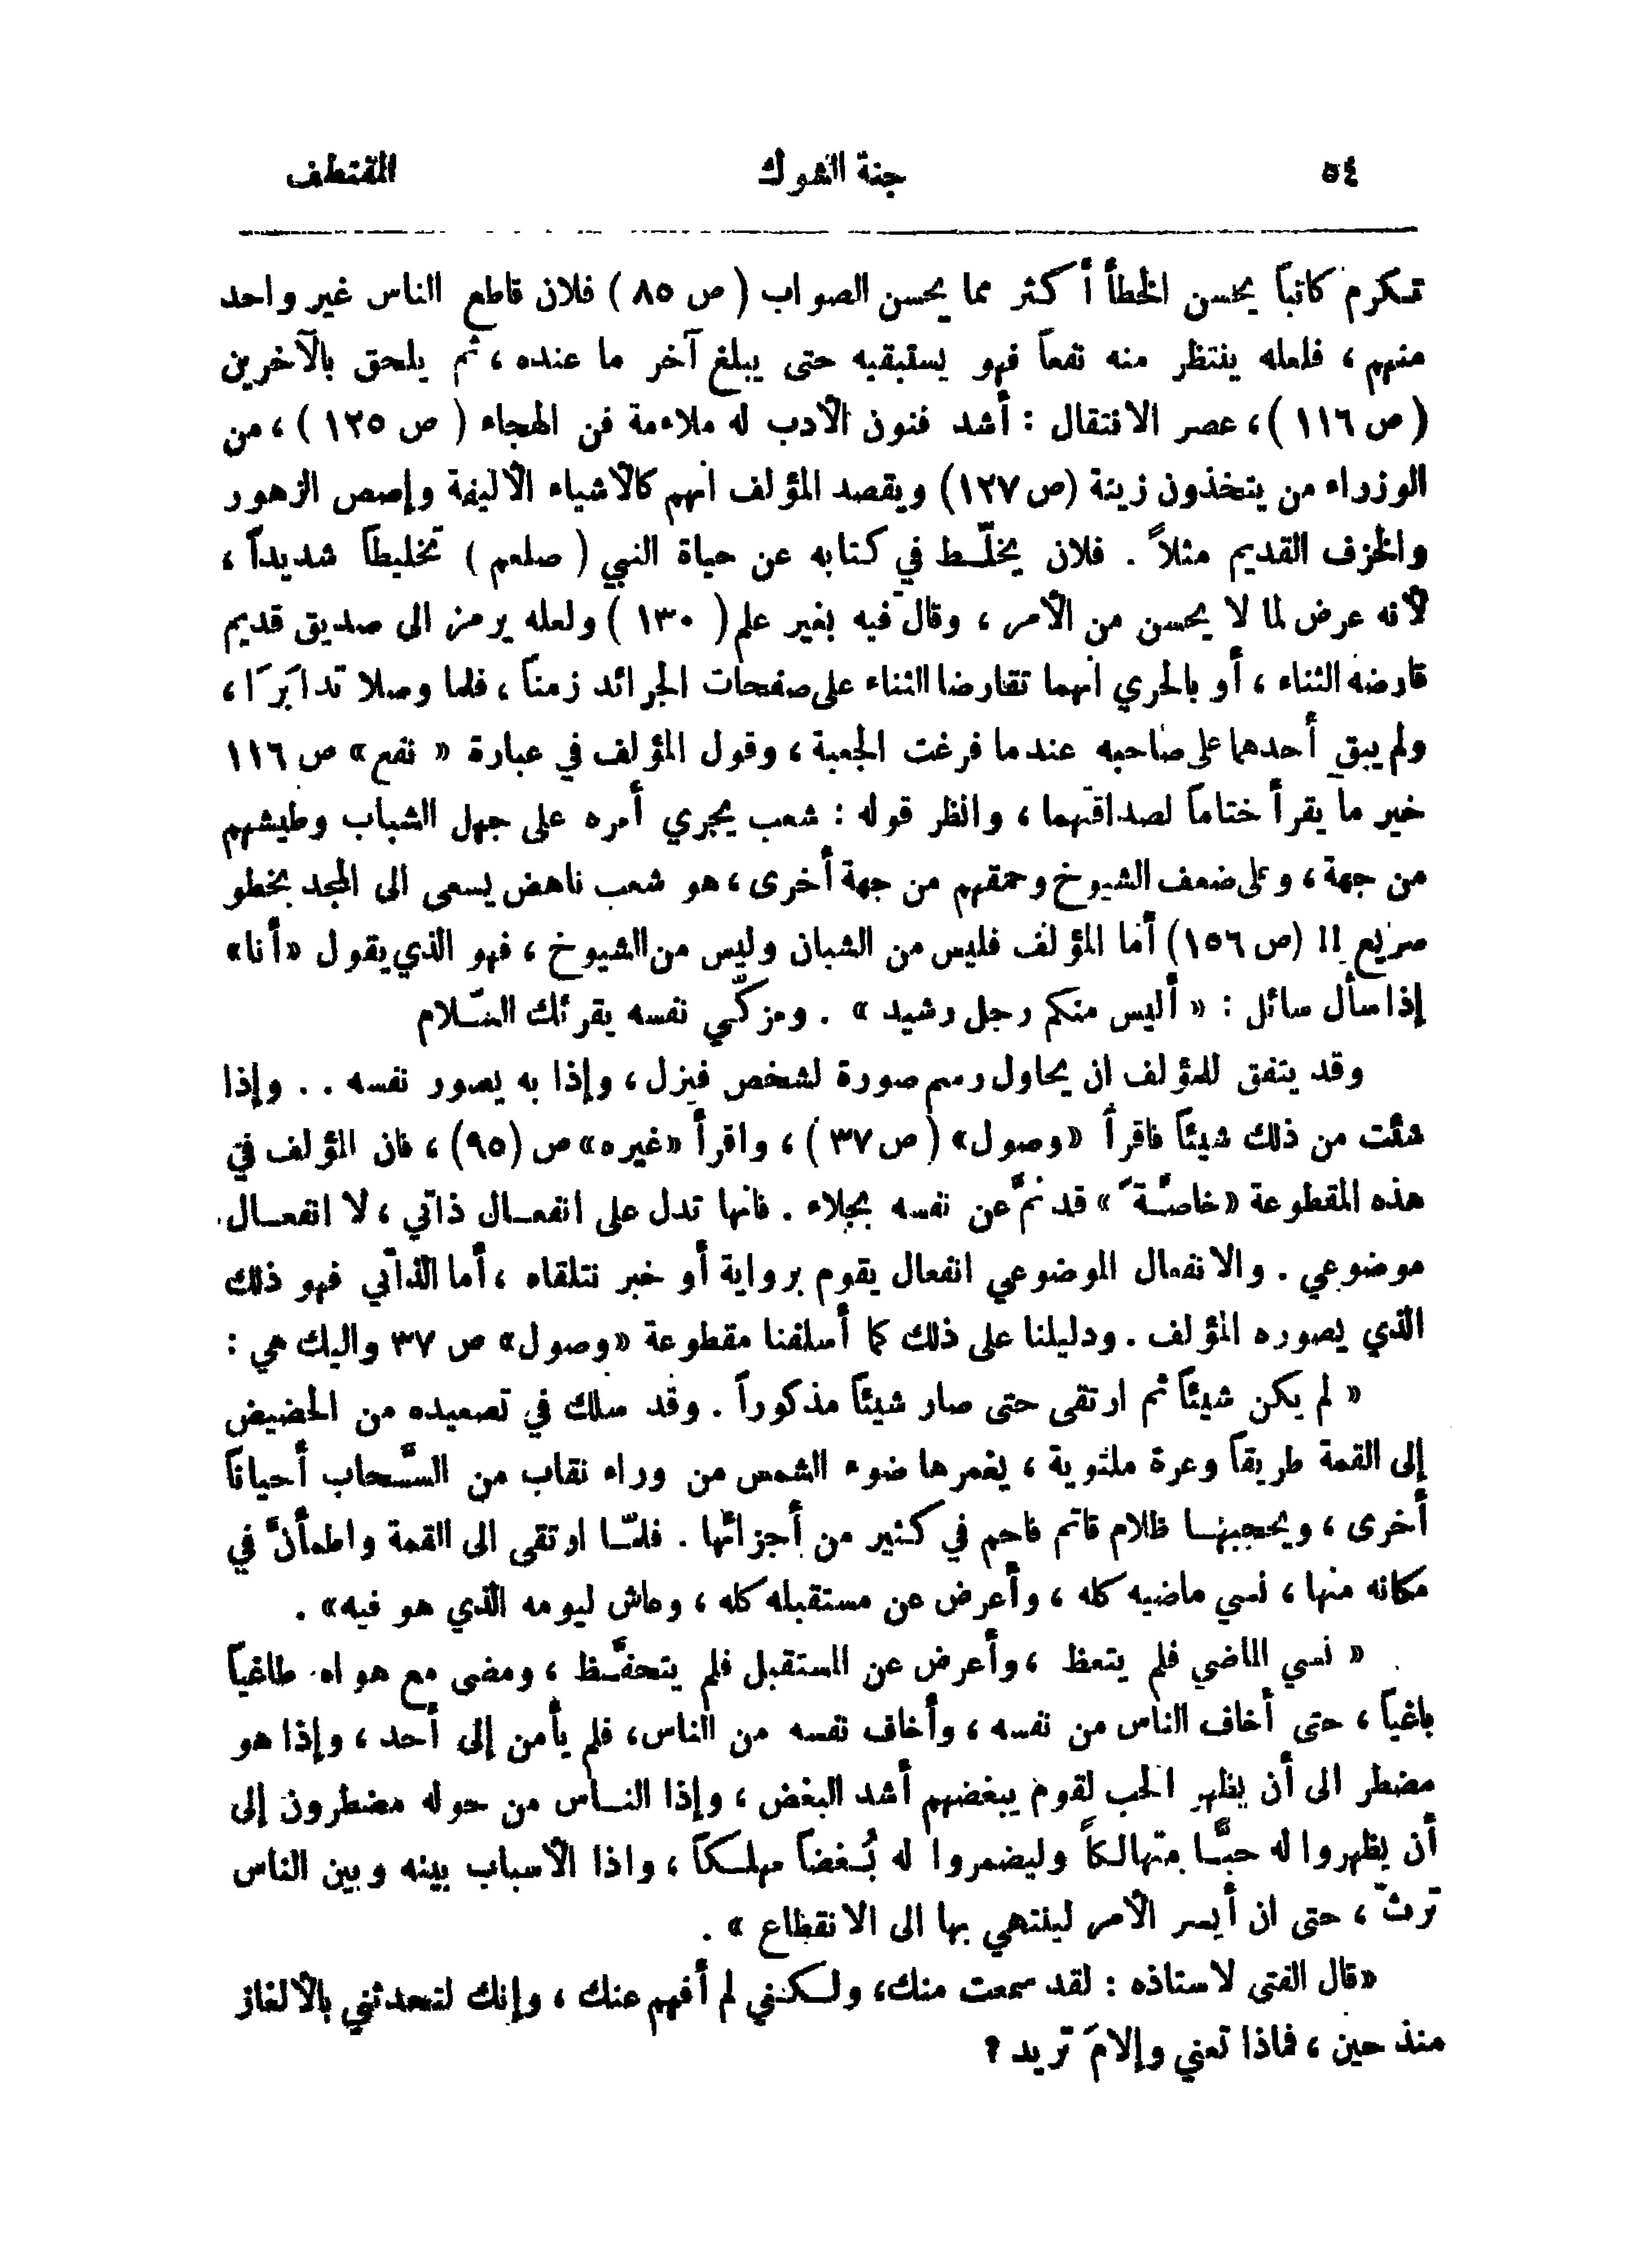 ٥٤ جنة الشوك المقتطف
تكرم كاتباً يحسن الخطأ أكثر مما يحسن الصواب (ص ٨٥) فلان قاطع الناس غير واحد
منهم ، فلعله ينتظر منه نفعاً فهو يستبقيه حتى يبلغ آخر ما عنده ، ثم يلحق بالآخرين
(ص ١١٦) ، عصر الانتقال : أشد فنون الأدب له ملاءمة فن الهجاء (ص ١٢٥) ، من
الوزراء من يتخذون زينة (ص ١٢٧) ويقصد المؤلف انهم كالأشياء الأليفة وإصص الزهور
والخزف القديم مثلاً . فلان يخلّط في كتابه عن حياة النبي (صلعم) تخليطاً شديداً ،
لأنه عرض لما لا يحسن من الأمر ، وقال فيه بغير علم (١٣٠) ولعله يرمز الى صديق قديم
قارضه الثناء ، أو بالحري انهما تقارضا الثناء على صفحات الجرائد زمناً ، فلما وصلا تدابَرَا ،
ولم يبق أحدهما على صاحبه عندما فرغت الجعبة ، وقول المؤلف في عبارة « نفع » ص ١١٦
خير ما يقرأ ختاماً لصداقتهما ، وانظر قوله : شعب يجري أمره على جهل الشباب وطيشهم
من جهة ، وعلى ضعف الشيوخ وحمقهم من جهة أخرى ، هو شعب ناهض يسعى الى المجد بخطو
سريع !! (ص ١٥٦) أما المؤلف فليس من الشبان وليس من الشيوخ ، فهو الذي يقول «أنا»
إذا سأل سائل : « أليس منكم رجل رشيد » . ومزكّي نفسه يقرئك السّلام
وقد يتفق للمؤلف ان يحاول رسم صورة لشخص فيزل ، وإذا به يصور نفسه . . وإذا
شئت من ذلك شيئاً فاقرأ «وصول» (ص ٣٧) ، واقرأ «غيره» ص (٩٥) ، فان المؤلف في
هذه المقطوعة «خاصّة» قد نمّ عن نفسه بجلاء . فانها تدل على انفعال ذاتي ، لا انفعال
موضوعي . والانفعال الموضوعي انفعال يقوم برواية أو خبر نتلقاه ، أما الذاتي فهو ذلك
الذي يصوره المؤلف . ودليلنا على ذلك كما أسلفنا مقطوعة «وصول» ص ٣٧ واليك هي :
« لم يكن شيئاً ثم ارتقى حتى صار شيئاً مذكوراً . وقد سلك في تصعيده من الحضيض
إلى القمة طريقاً وعرة ملتوية ، يغمرها ضوء الشمس من وراء نقاب من السَّحاب أحياناً
أخرى ، ويحجبها ظلام قاتم فاحم في كثير من أجزائها . فلمّا ارتقى الى القمة واطمأنّ في
مكانه منها ، نسي ماضيه كله ، وأعرض عن مستقبله كله ، وعاش ليومه الذي هو فيه» .
« نسي الماضي فلم يتعظ ، وأعرض عن المستقبل فلم يتحفَّظ ، ومضى مع هواه طاغياً
باغياً ، حتى أخاف الناس من نفسه ، وأخاف نفسه من الناس ، فلم يأمن إلى أحد ، وإذا هو
مضطر الى أن يظهر الحب لقوم يبغضهم أشد البغض ، وإذا الناس من حوله مضطرون إلى
أن يظهروا له حبًّا متهالكاً وليضمروا له بُغضاً مهلكاً ، واذا الأسباب بينه وبين الناس
ترثّ ، حتى ان أيسر الأمر لينتهي بها الى الانقطاع » .
«قال الفتى لاستاذه : لقد سمعت منك ، ولكنني لم أفهم عنك ، وإنك لتحدثني بالألغاز
منذ حين ، فماذا تعني وإلامَ تريد ؟